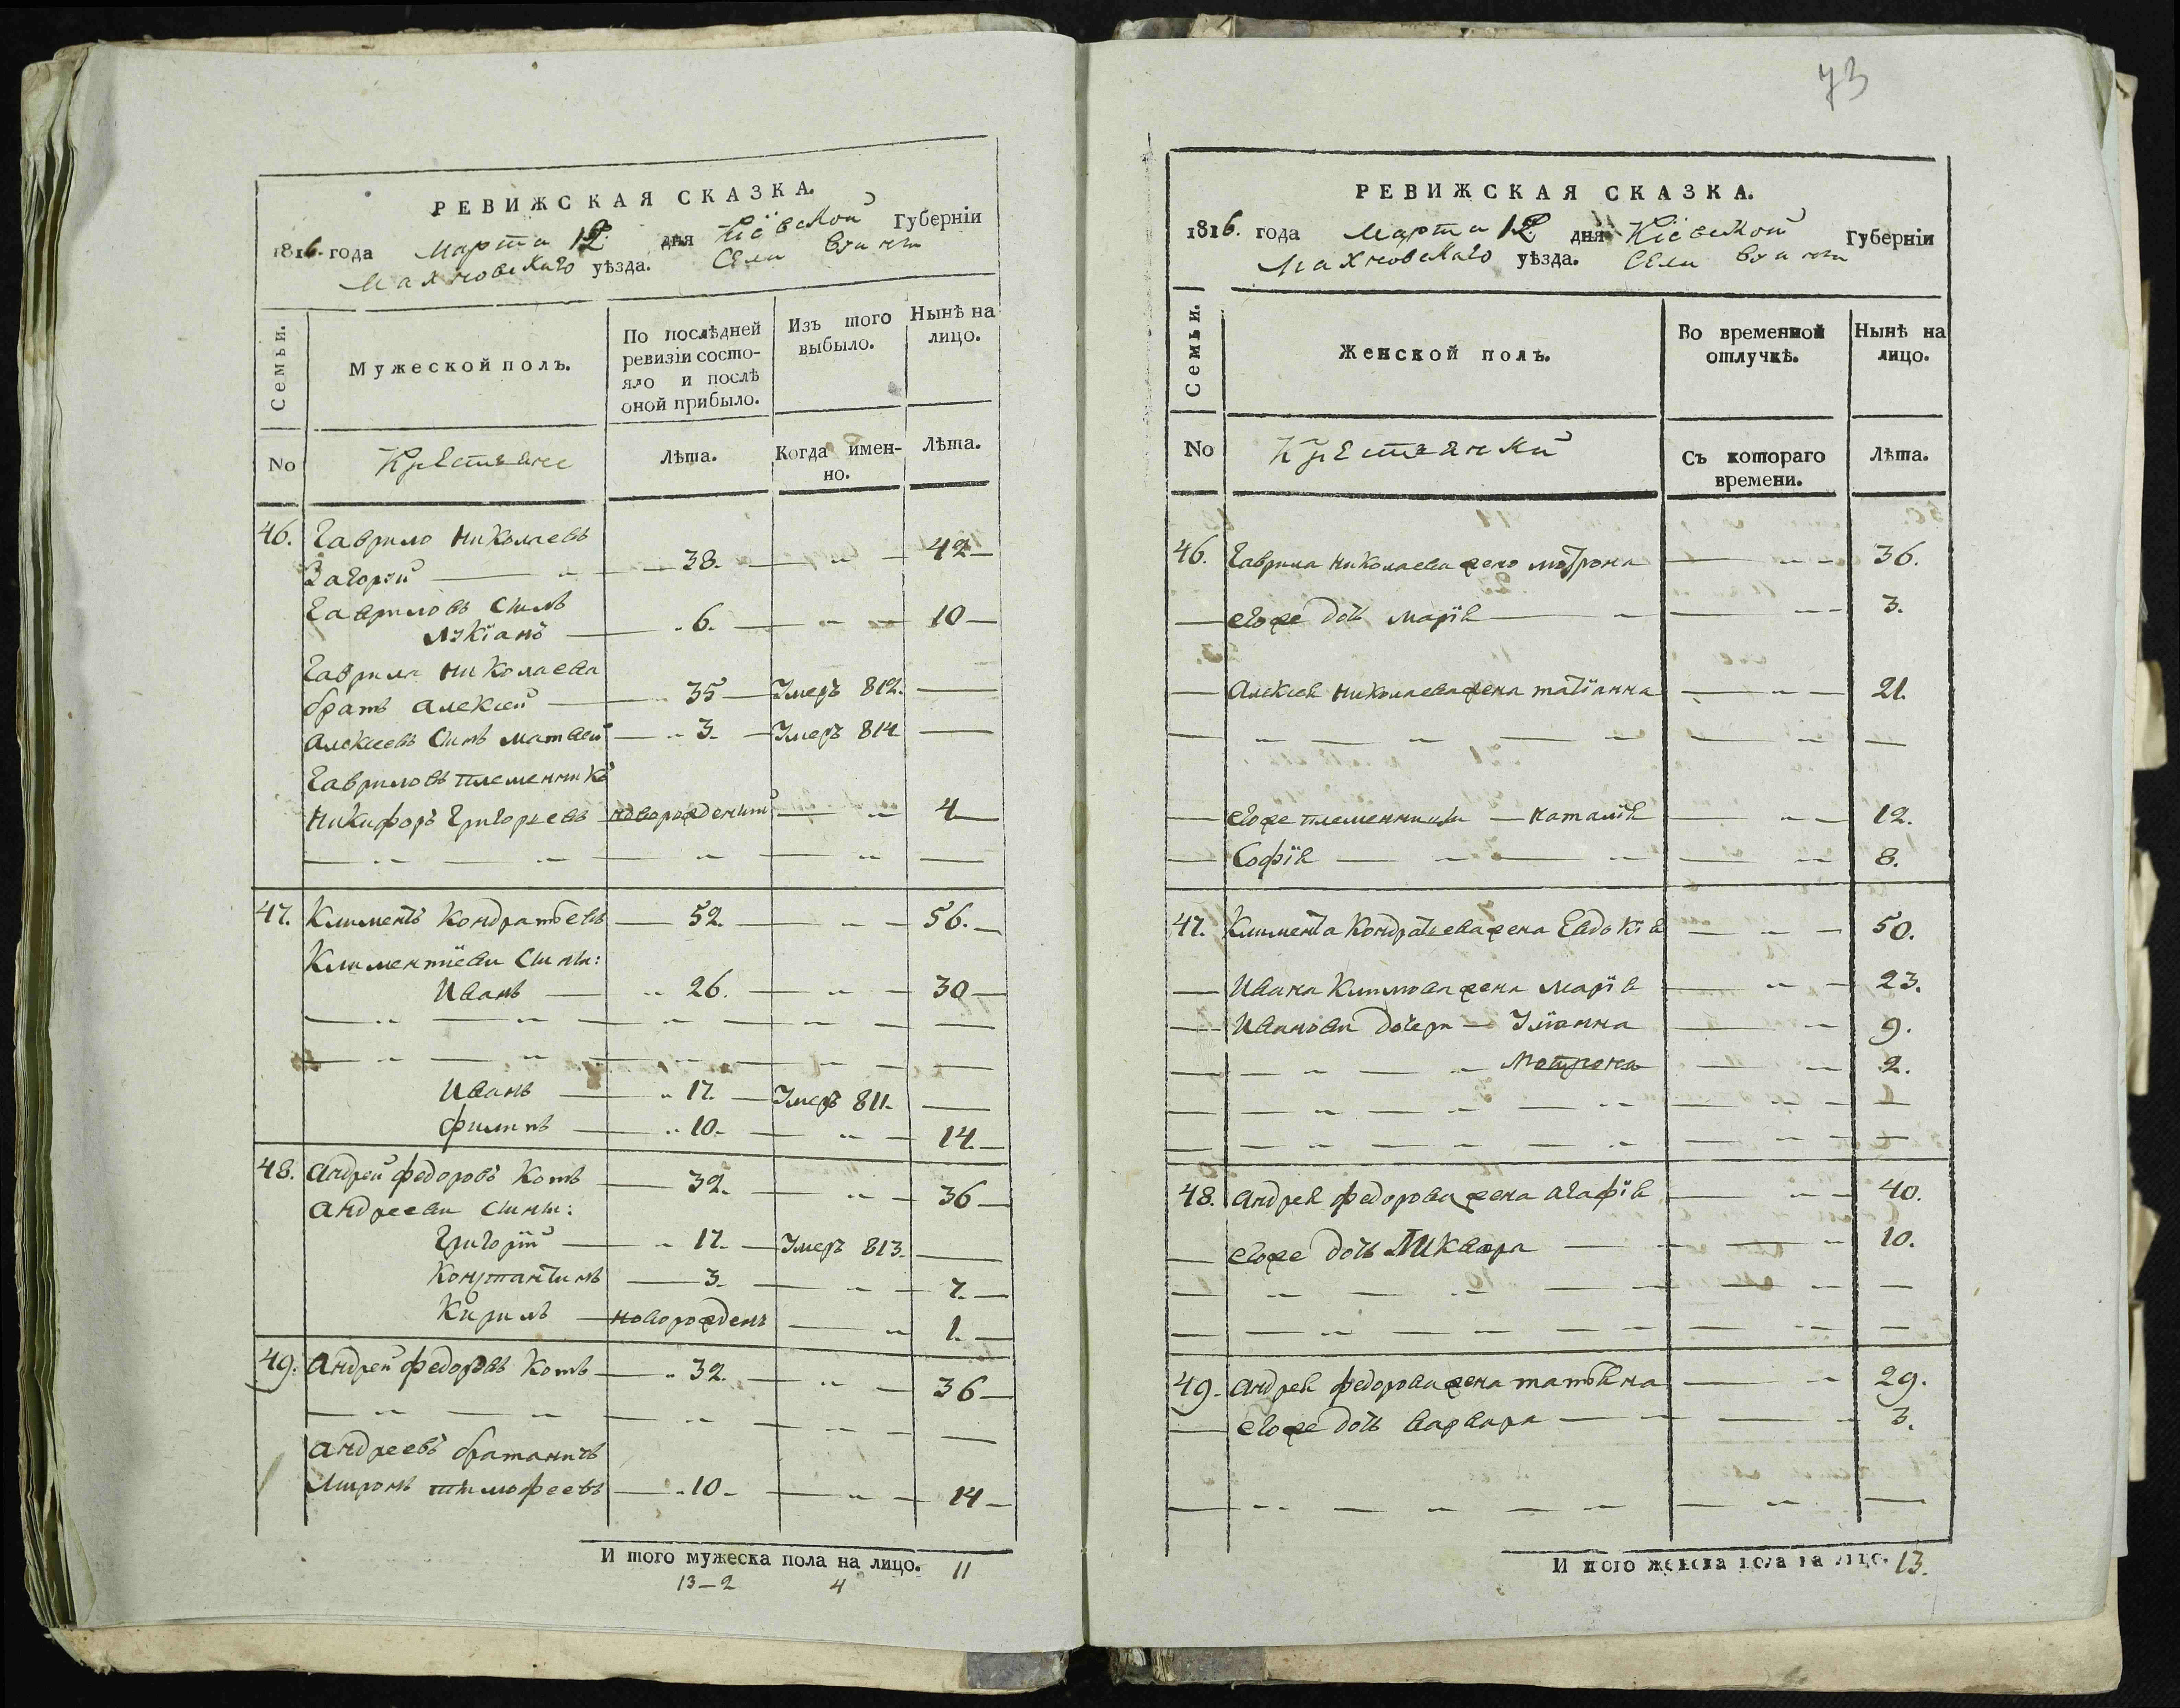 РЕВИЖСКАЯ СКАЗКА.
1816. года Марта 12. дня Кіевской Губерніи
Махновскаго уѣзда. Села
Семьи.
Мужеской полъ.
По послѣдней ревизіи состо-
яло и послѣ оной прибыло.
Изъ того выбыло.
Нынѣ на лицо.
No Крестьяне Лѣта. Когда имен-
но. Лѣта.
46. Гаврило Николаевъ
Загорій 38. 42
Гавриловъ Сынъ
Лукіанъ 6. 10
Гаврила Николаева
братъ Алексей 35 Умеръ 812.
Алексеевъ Сынъ Матвей 3. Умеръ 814
Гавриловъ племенникъ
Никифоръ Григорьевъ новорожденный 4
47. Климентъ Кондратьевъ 52. 56.
Климентіеви Сыны:
Иванъ 26. 30
Иванъ 17. Умеръ 811.
Филипъ 10. 14.
48. Андрей Федоровъ Котъ 32. 36
Андрееви Сыны:
Григорій 17. Умеръ 813.
Константинъ 3. 7.
Кирилъ новорожденъ 1.
49. Андрей Федоровъ Котъ 32. 36
Андреевъ братаничъ
Миронъ Тимофеевъ 10 14
И того мужеска пола на лицо. 11
13-2 4
73
РЕВИЖСКАЯ СКАЗКА.
1816. года Марта 12. дня Кіевской Губерніи
Махновскаго уѣзда. Села
Семьи.
Женской полъ.
Во временной отлучкѣ.
Нынѣ на лицо.
No Крестьянки Съ котораго
времени. Лѣта.
46. Гаврила Николаева жена Мотрона 36.
егоже дочь Марія 3.
Алексея Николаева жена Татіанна 21.
егоже племенници Наталія 12.
Софія 8.
47. Климента Кондратьева жена Евдокія 50.
Ивана Климова жена Марія 23.
Иванови дочери Уліанна 9.
Мотрона 2.
48. Андрея Федорова жена Агафія 40.
егоже дочь 10.
49. Андрея Федорова жена Татьяна 29.
егоже дочь Варвара 3.
И того женска пола на лицо. 13.